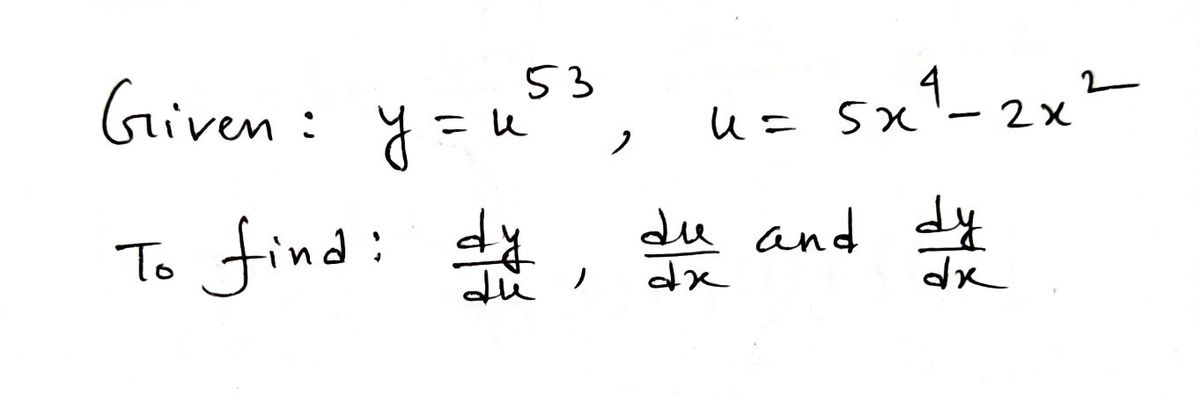 Given : y = u^53 , u = 5x^4 - 2x^2
To find : dy/du , du/dx and dy/dx